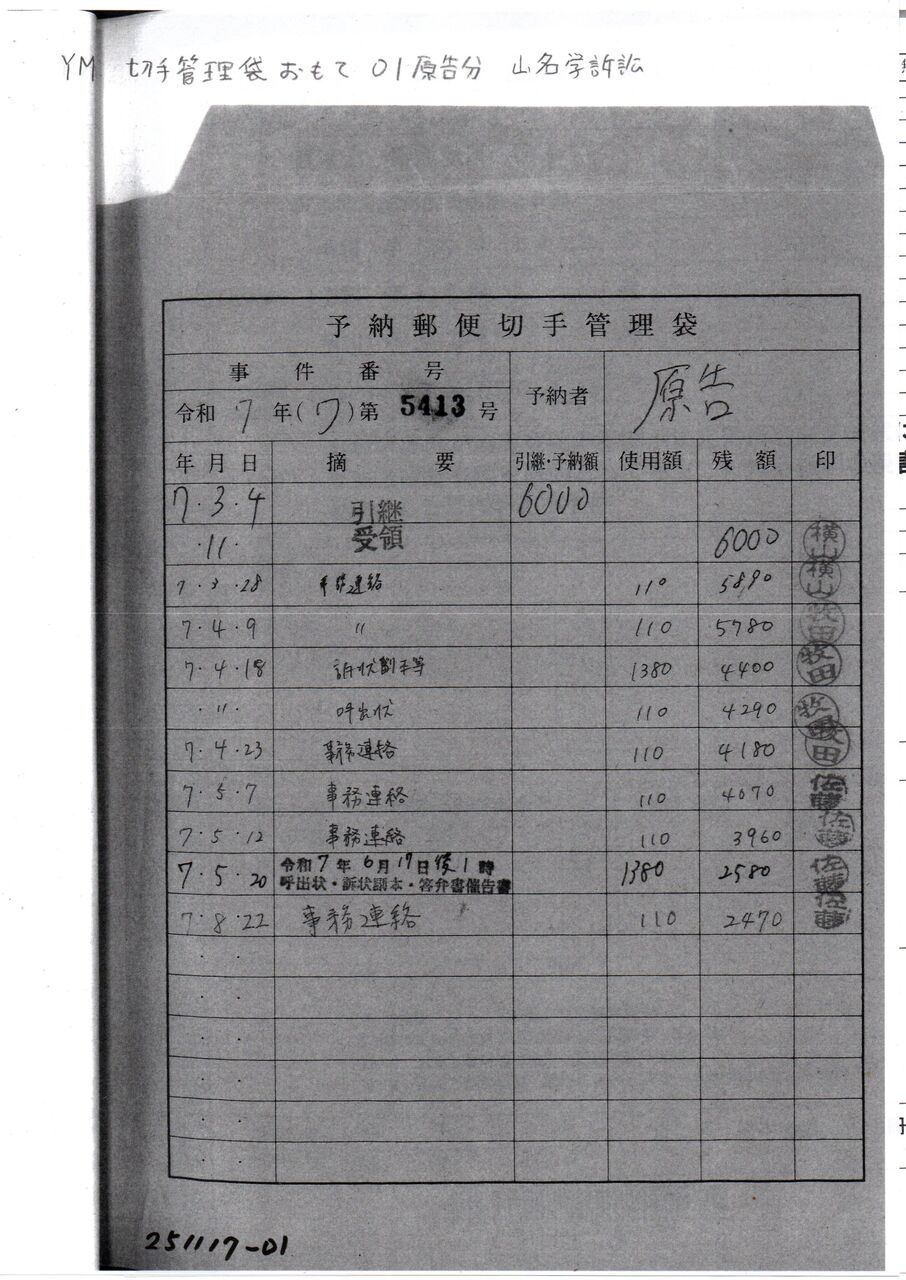 YM 切手管理袋 おもて 01原告分 山名学訴訟
予納郵便切手管理袋
事件番号 予納者 原告
令和 7 年(ワ)第 5413 号
年月日 摘要 引継・予納額 使用額 残額 印
7・3・4 引継 6000
・11・ 受領 6000 横山
7・3・28 事務連絡 110 5890 横山
7・4・9 〃 110 5780 牧田
7・4・18 訴状副本等 1380 4400 牧田
・〃・ 呼出状 110 4290 牧田
7・4・23 事務連絡 110 4180 牧田
7・5・7 事務連絡 110 4070 佐藤
7・5・12 事務連絡 110 3960 佐藤
7・5・20 令和7年6月17日後1時 1380 2580 佐藤
呼出状・訴状副本・答弁書催告書
7・8・22 事務連絡 110 2470 佐藤
251117-01